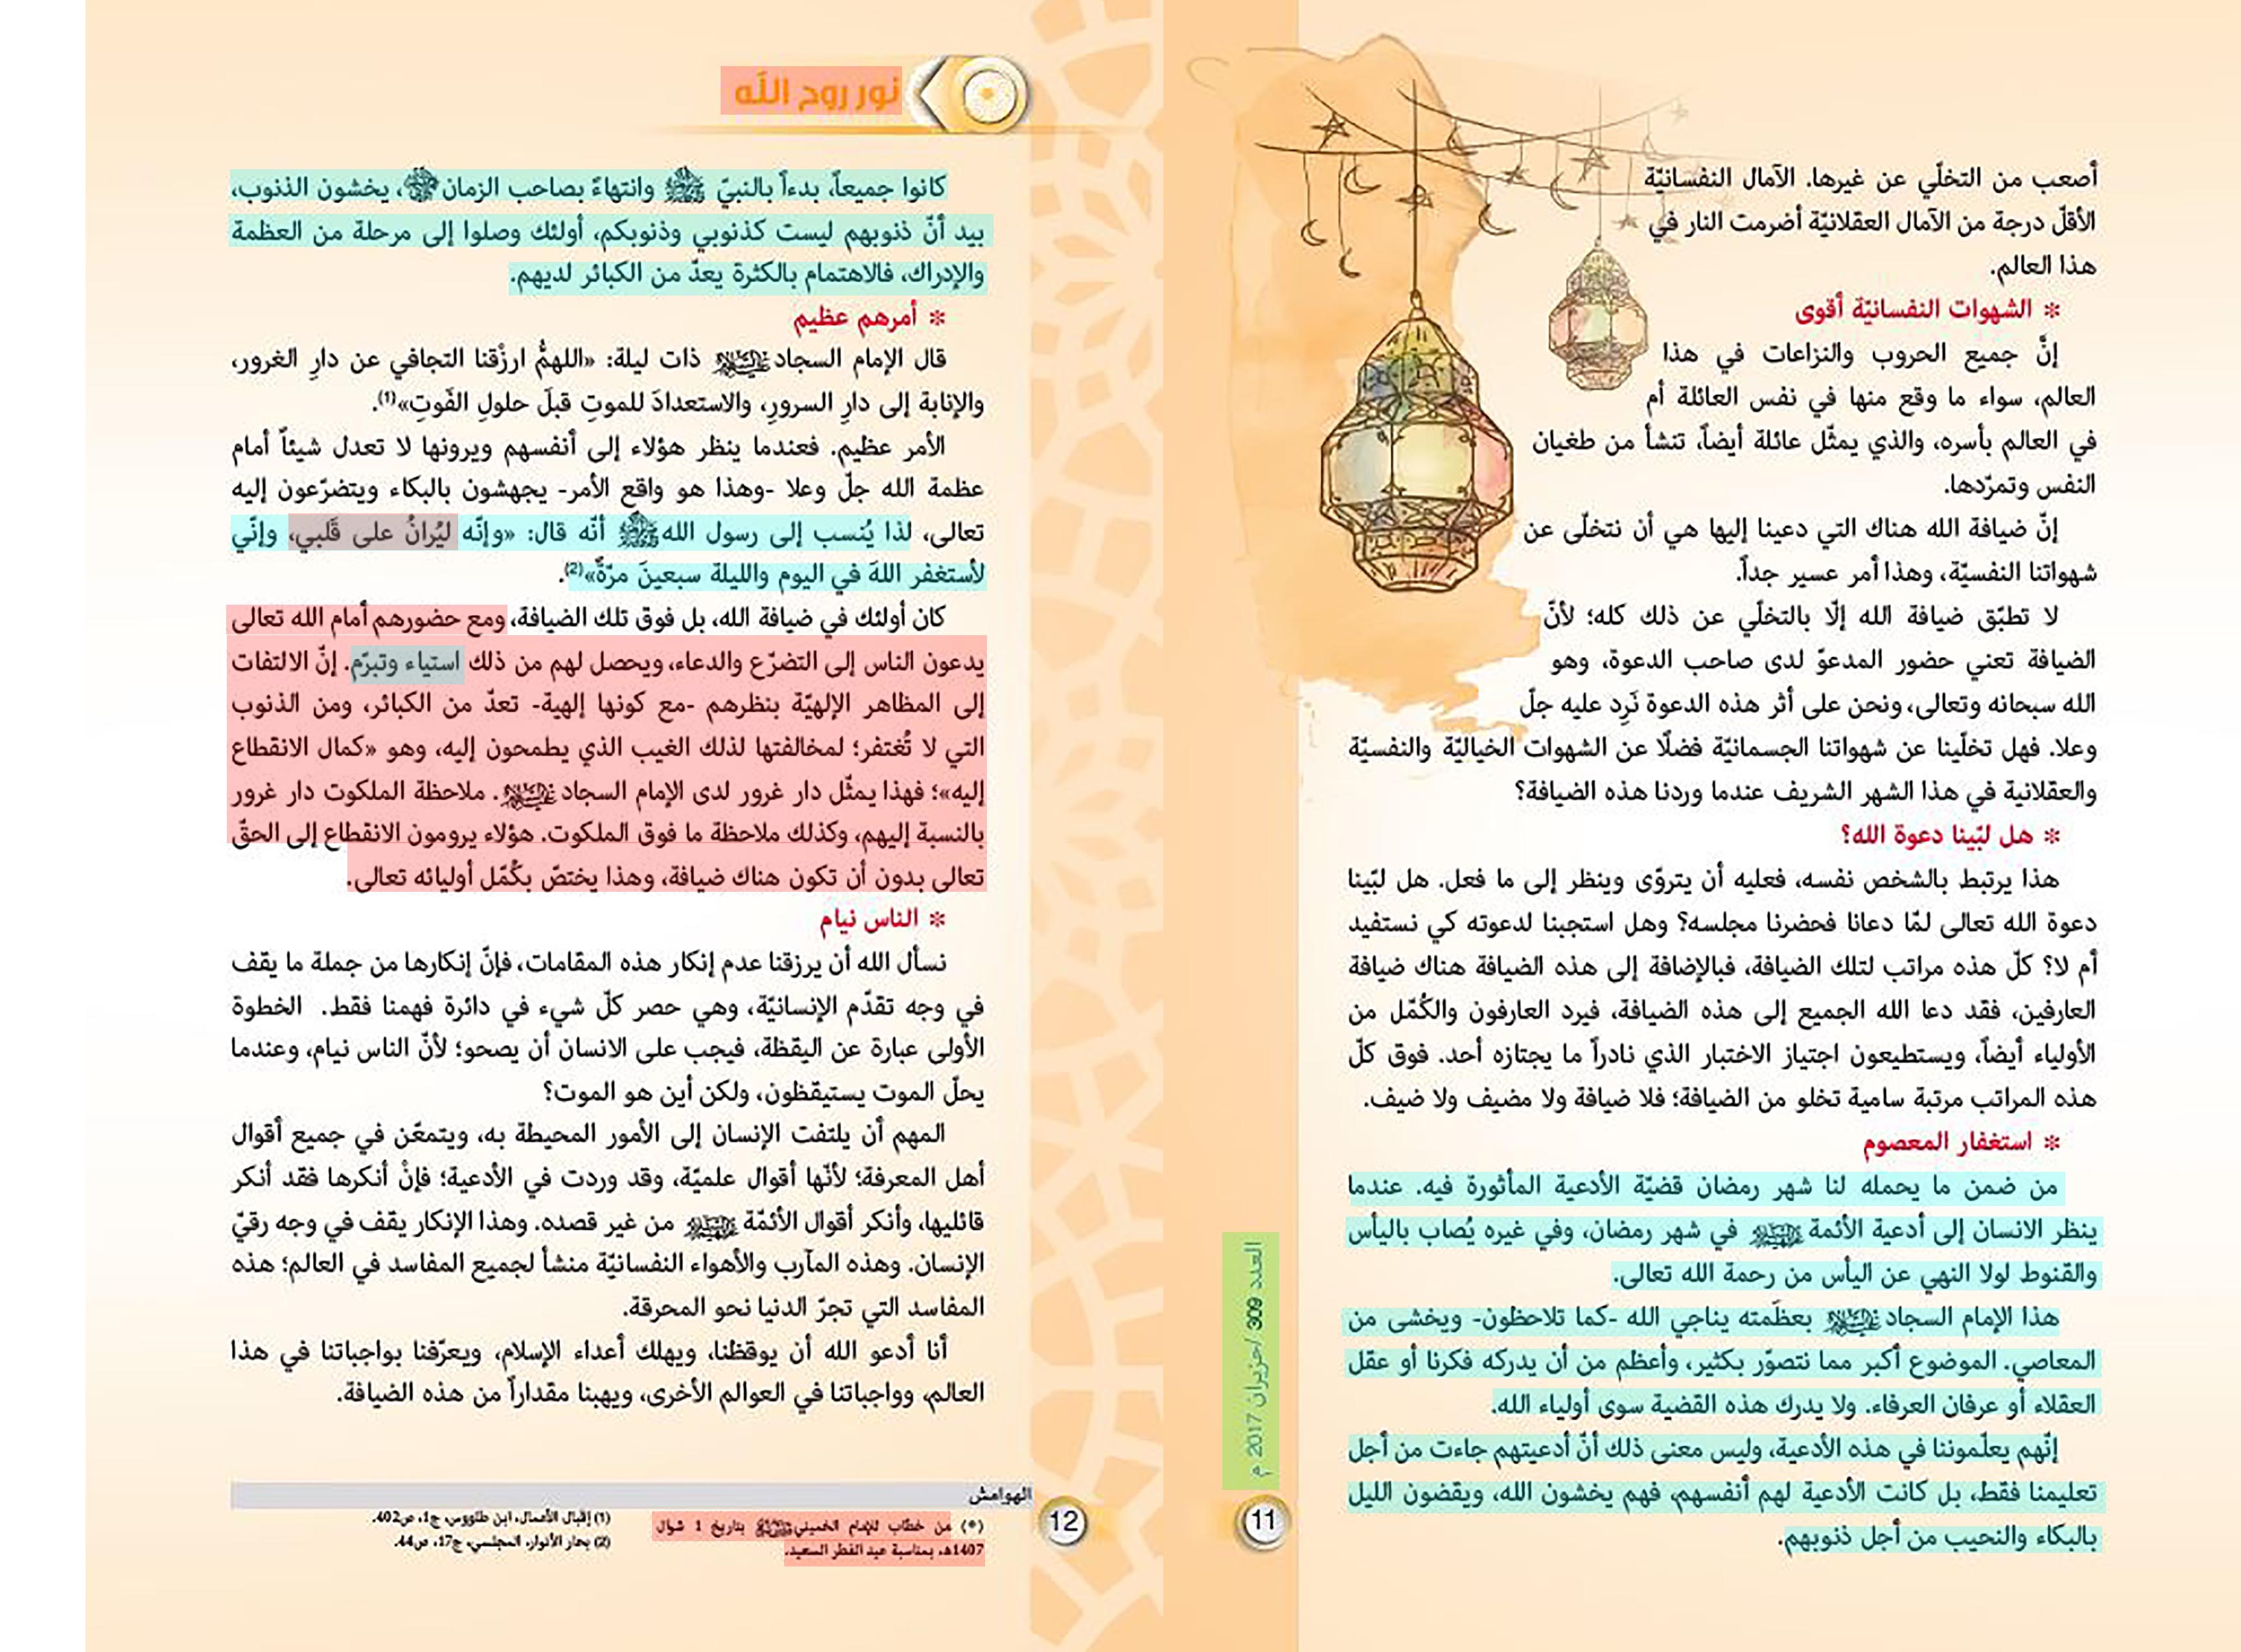 أصعب من التخلّي عن غيرها. الآمال النفسانيّة
الأقلّ درجة من الآمال العقلانيّة أضرمت النار في
هذا العالم.
* الشهوات النفسانيّة أقوى
إنَّ جميع الحروب والنزاعات في هذا
العالم، سواء ما وقع منها في نفس العائلة أم
في العالم بأسره، والذي يمثّل عائلة أيضاً، تنشأ من طغيان
النفس وتمرّدها.
إنّ ضيافة الله هناك التي دعينا إليها هي أن نتخلّى عن
شهواتنا النفسيّة، وهذا أمر عسير جداً.
لا تطبّق ضيافة الله إلّا بالتخلّي عن ذلك كله؛ لأنّ
الضيافة تعني حضور المدعوّ لدى صاحب الدعوة، وهو
الله سبحانه وتعالى، ونحن على أثر هذه الدعوة نَرِد عليه جلّ
وعلا. فهل تخلّينا عن شهواتنا الجسمانيّة فضلًا عن الشهوات الخياليّة والنفسيّة
والعقلانية في هذا الشهر الشريف عندما وردنا هذه الضيافة؟
* هل لبّينا دعوة الله؟
هذا يرتبط بالشخص نفسه، فعليه أن يتروّى وينظر إلى ما فعل. هل لبّينا
دعوة الله تعالى لمّا دعانا فحضرنا مجلسه؟ وهل استجبنا لدعوته كي نستفيد
أم لا؟ كلّ هذه مراتب لتلك الضيافة، فبالإضافة إلى هذه الضيافة هناك ضيافة
العارفين، فقد دعا الله الجميع إلى هذه الضيافة، فيرد العارفون والكُمّل من
الأولياء أيضاً، ويستطيعون اجتياز الاختبار الذي نادراً ما يجتازه أحد. فوق كلّ
هذه المراتب مرتبة سامية تخلو من الضيافة؛ فلا ضيافة ولا مضيف ولا ضيف.
* استغفار المعصوم
من ضمن ما يحمله لنا شهر رمضان قضيّة الأدعية المأثورة فيه. عندما
ينظر الانسان إلى أدعية الأئمة في شهر رمضان، وفي غيره يُصاب باليأس
والقنوط لولا النهي عن اليأس من رحمة الله تعالى.
هذا الإمام السجاد بعظَمته يناجي الله -كما تلاحظون- ويخشى من
المعاصي. الموضوع أكبر مما نتصوّر بكثير، وأعظم من أن يدركه فكرنا أو عقل
العقلاء أو عرفان العرفاء. ولا يدرك هذه القضية سوى أولياء الله.
إنّهم يعلّموننا في هذه الأدعية، وليس معنى ذلك أنّ أدعيتهم جاءت من أجل
تعليمنا فقط، بل كانت الأدعية لهم أنفسهم، فهم يخشون الله، ويقضون الليل
بالبكاء والنحيب من أجل ذنوبهم.
العدد 309 /حزيران 2017 م
11
نور روح الله
كانوا جميعاً، بدءاً بالنبيّ ﷺ وانتهاءً بصاحب الزمان، يخشون الذنوب،
بيد أنّ ذنوبهم ليست كذنوبي وذنوبكم، أولئك وصلوا إلى مرحلة من العظمة
والإدراك، فالاهتمام بالكثرة يعدّ من الكبائر لديهم.
* أمرهم عظيم
قال الإمام السجاد ذات ليلة: «اللهمُّ ارزْقنا التجافي عن دارِ الغرور،
والإنابة إلى دارِ السرورِ، والاستعدادَ للموتِ قبلَ حلولِ الفَوتِ»(1).
الأمر عظيم. فعندما ينظر هؤلاء إلى أنفسهم ويرونها لا تعدل شيئاً أمام
عظمة الله جلّ وعلا -وهذا هو واقع الأمر- يجهشون بالبكاء ويتضرّعون إليه
تعالى، لذا يُنسب إلى رسول الله ﷺ أنّه قال: «وإنّه ليُرانُ على قَلبي، وإنّي
لأستغفر اللهَ في اليوم والليلة سبعينَ مرّةً»(2).
كان أولئك في ضيافة الله، بل فوق تلك الضيافة، ومع حضورهم أمام الله تعالى
يدعون الناس إلى التضرّع والدعاء، ويحصل لهم من ذلك استياء وتبرّم. إنّ الالتفات
إلى المظاهر الإلهيّة بنظرهم -مع كونها إلهية- تعدّ من الكبائر، ومن الذنوب
التي لا تُغتفر؛ لمخالفتها لذلك الغيب الذي يطمحون إليه، وهو «كمال الانقطاع
إليه»؛ فهذا يمثّل دار غرور لدى الإمام السجاد. ملاحظة الملكوت دار غرور
بالنسبة إليهم، وكذلك ملاحظة ما فوق الملكوت. هؤلاء يرومون الانقطاع إلى الحقّ
تعالى بدون أن تكون هناك ضيافة، وهذا يختصّ بكُمّل أوليائه تعالى.
* الناس نيام
نسأل الله أن يرزقنا عدم إنكار هذه المقامات، فإنّ إنكارها من جملة ما يقف
في وجه تقدّم الإنسانيّة، وهي حصر كلّ شيء في دائرة فهمنا فقط. الخطوة
الأولى عبارة عن اليقظة، فيجب على الانسان أن يصحو؛ لأنّ الناس نيام، وعندما
يحلّ الموت يستيقظون، ولكن أين هو الموت؟
المهم أن يلتفت الإنسان إلى الأمور المحيطة به، ويتمعّن في جميع أقوال
أهل المعرفة؛ لأنّها أقوال علميّة، وقد وردت في الأدعية؛ فإنْ أنكرها فقد أنكر
قائليها، وأنكر أقوال الأئمّة من غير قصده. وهذا الإنكار يقف في وجه رقيّ
الإنسان. وهذه المآرب والأهواء النفسانيّة منشأ لجميع المفاسد في العالم؛ هذه
المفاسد التي تجرّ الدنيا نحو المحرقة.
أنا أدعو الله أن يوقظنا، ويهلك أعداء الإسلام، ويعرّفنا بواجباتنا في هذا
العالم، وواجباتنا في العوالم الأخرى، ويهبنا مقداراً من هذه الضيافة.
الهوامش
(*) من خطاب للإمام الخميني بتاريخ 1 شوال
1407هـ، بمناسبة عيد الفطر السعيد.
(1) إقبال الأعمال، ابن طاووس، ج1، ص402.
(2) بحار الأنوار، المجلسي، ج17، ص44.
12